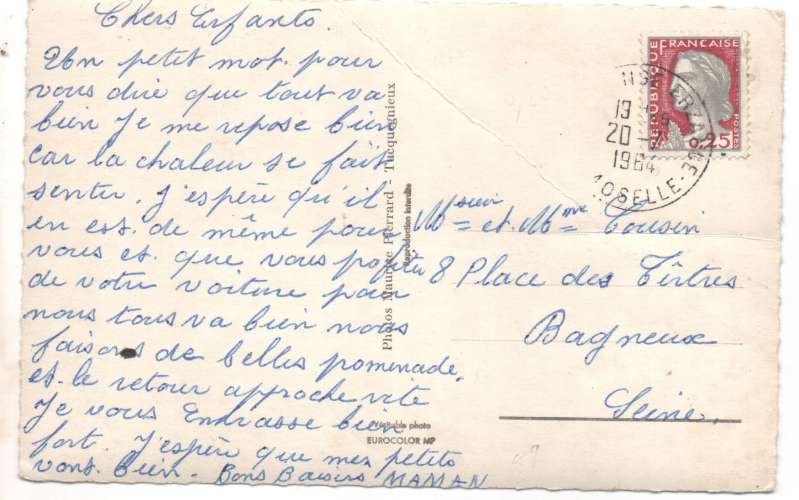 Chers Enfants.
Un petit mot pour
vous dire que tout va
bien Je me repose bien
car la chaleur se fait
sentir. j'espère qu'il
en est de même pour
vous et que vous profitez
de votre voiture pour
nous tous va bien nous
faisons de belles promenade.
et le retour approche vite
Je vous Embrasse bien
fort. J'espère que mes petits
vont bien - Bons Baisers MAMAN
Photos Maurice Pierrard - Tucquegnieux
Reproduction interdite
Véritable photo
EUROCOLOR MP
REPUBLIQUE FRANCAISE
0,25
POSTES
13 H
20 -7
1964
MOSELLE
Msieur et Mme Cousin
8 Place des Tîrtres
Bagneux
Seine.